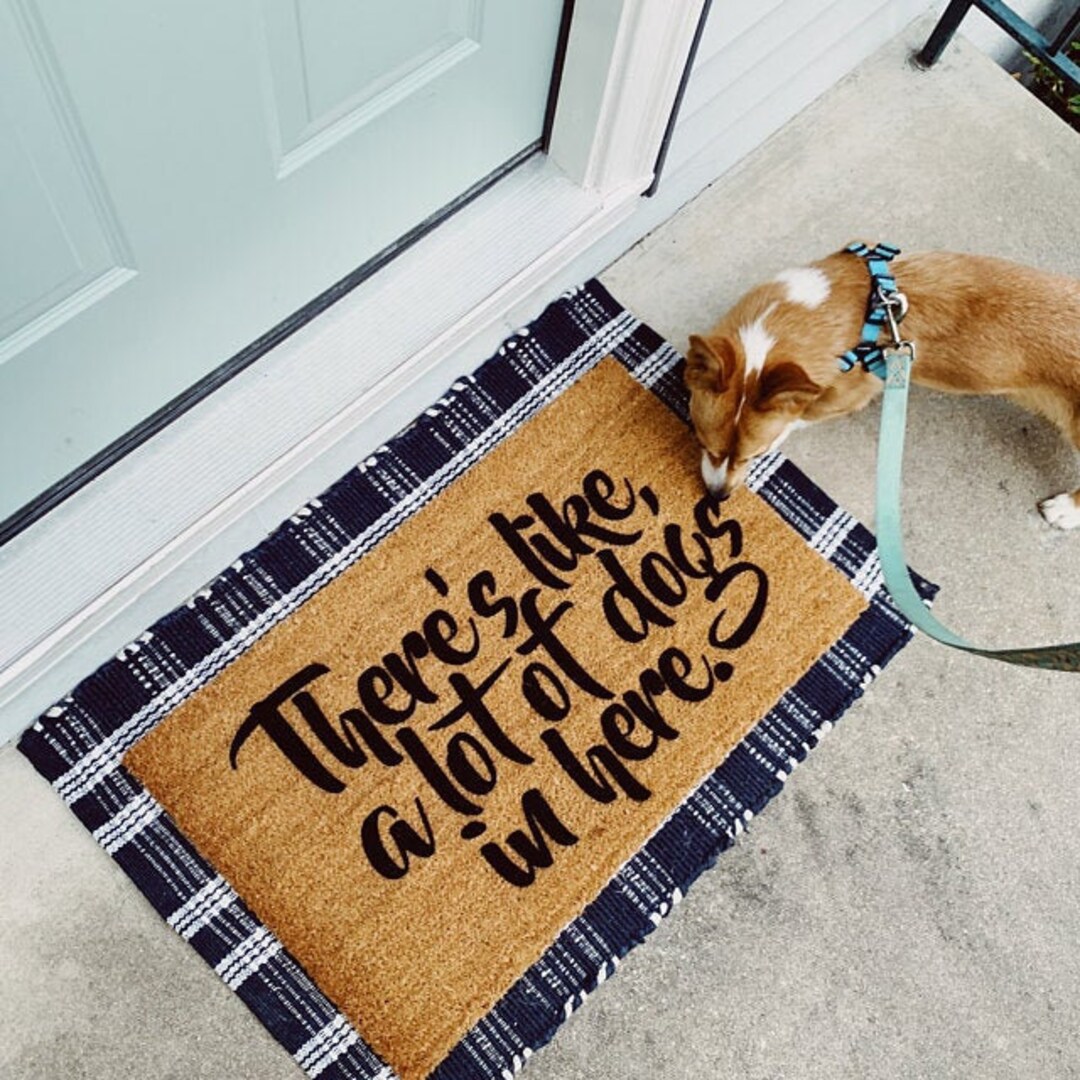 There's like,
a lot of dogs
in here.